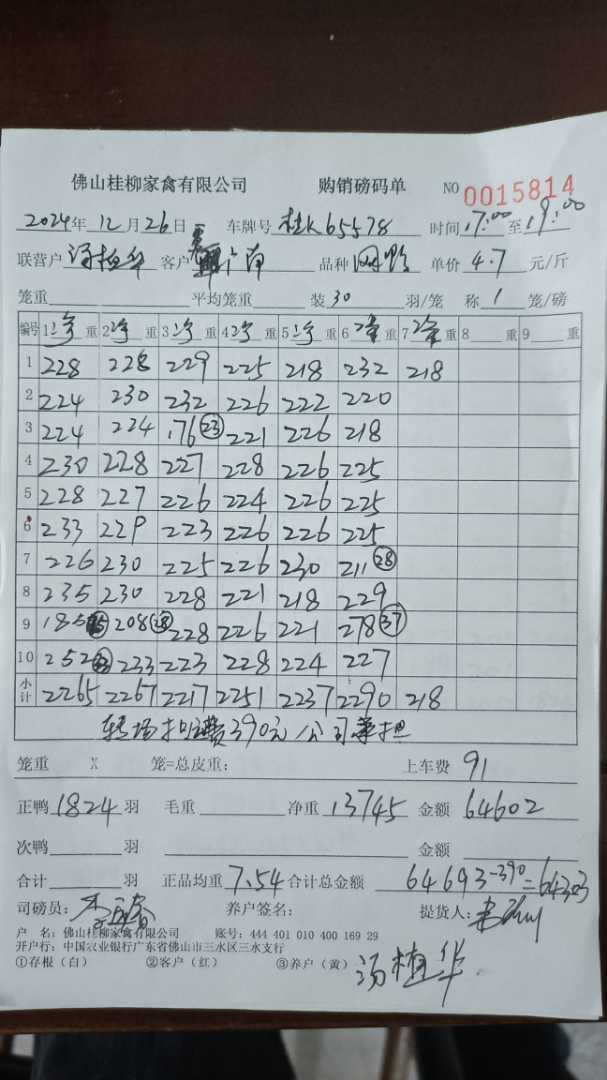 佛山桂柳家禽有限公司 购销磅码单 NO 0015814
2024年 12月 26日 车牌号 桂K65578 时间 17:00 至 19:00
联营户 汤植华 客户 广南 品种 单价 4.7 元/斤
笼重 平均笼重 装 30 羽/笼 称 1 笼/磅
编号 1 重 2 重 3 重 4 重 5 重 6 重 7 重 8 重 9 重
1 228 228 229 225 218 232 218
2 224 230 232 226 222 220
3 224 224 176 (23) 221 226 218
4 230 228 227 228 226 225
5 228 227 226 224 226 225
6 233 229 223 226 226 225
7 226 230 225 226 230 211 (28)
8 235 230 228 221 218 229
9 185 208 (28) 228 226 221 278 (37)
10 252 233 223 228 224 227
小计 2265 2267 2217 2251 2237 2290 218
转场 费390元 公司承担
笼重 X 笼=总皮重: 上车费 91
正鸭 1824 羽 毛重 净重 13745 金额 64602
次鸭 羽 金额
合计 羽 正品均重 7.54 合计总金额 64693-390=64303
司磅员: 养户签名: 提货人:
户 名: 佛山桂柳家禽有限公司 账号: 444 401 010 400 169 29
开户行: 中国农业银行广东省佛山市三水区三水支行
①存根(白) ②客户(红) ③养户(黄) 汤植华